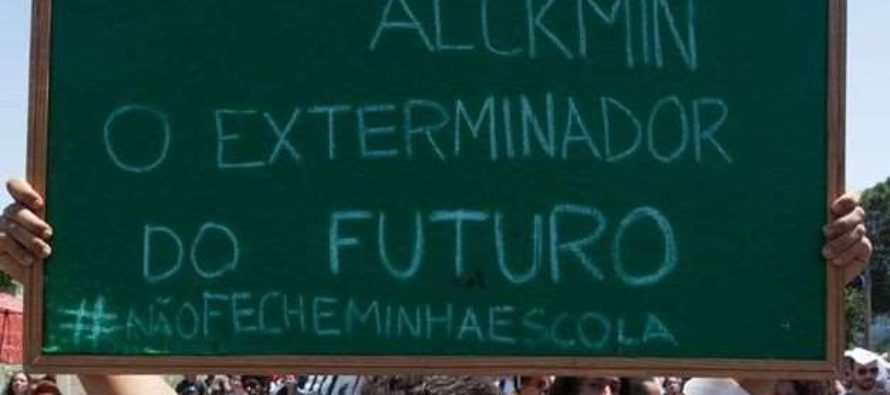 ALCKMIN
O EXTERMINADOR
DO FUTURO
#NÃOFECHEMINHAESCOLA